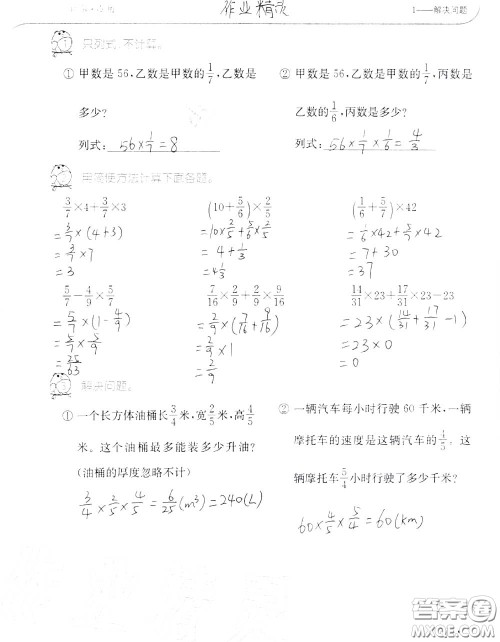 作业精灵
1——解决问题
1 只列式,不计算。
① 甲数是56,乙数是甲数的1/7,乙数是多少?
列式: 56×1/7=8
② 甲数是56,乙数是甲数的1/7,丙数是乙数的1/6,丙数是多少?
列式: 56×1/7×1/6=4/3
用简便方法计算下面各题。
3/7×4+3/7×3
=3/7×(4+3)
=3/7×7
=3
(10+5/6)×2/5
=10×2/5+5/6×2/5
=4+1/3
=4 1/3
(1/6+5/7)×42
=1/6×42+5/7×42
=7+30
=37
5/7-4/9×5/7
=5/7×(1-4/9)
=5/7×5/9
=25/63
7/16×2/9+2/9×9/16
=2/9×(7/16+9/16)
=2/9×1
=2/9
14/31×23+17/31×23-23
=23×(14/31+17/31-1)
=23×0
=0
解决问题。
① 一个长方体油桶长3/4米,宽2/5米,高4/5
米。这个油桶最多能装多少升油?
(油桶的厚度忽略不计)
3/4×2/5×4/5=6/25(m³)=240(L)
② 一辆汽车每小时行驶60千米,一辆
摩托车的速度是这辆汽车的4/5。这
辆摩托车5/4小时行驶了多少千米?
60×4/5×5/4=60(km)
答案圈
MXQE.COM